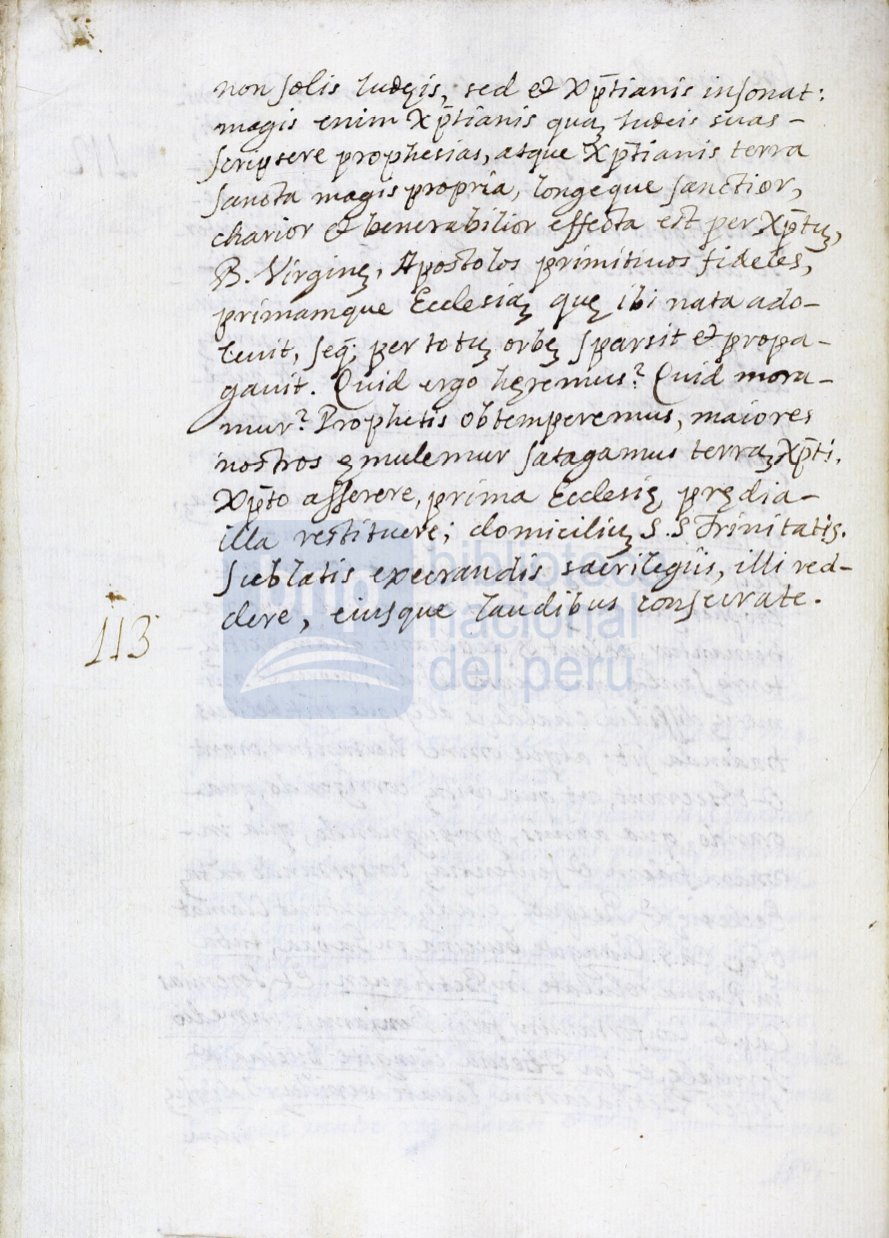 non solis Iudęis, sed et Xp̄tianis insonat:
magis enim Xp̄tianis quaȝ Iudeis suas-
scripsere prophesias, atque Xp̄tianis terra
sancta magis propria, longeque sanctior,
charior et benerabilior effecta est per Xp̄tuȝ,
B. Virginę, Apostolos primitiuos fideles,
primamque Ecclesiaȝ quę ibi nata ado-
leuit, seq; per totuȝ orbę sparsit et propa-
gauit. Quid ergo hęremus? Quid mora-
mur? Prophetis obtemperemus, maiores
nostros ęmulemur satagamus terraȝ Xp̄ti.
Xp̄to asserere, prima Ecclesię prędia-
illa restituere; domiciliuȝ S. S Trinitatis.
Sublatis execrandis sacrilegijs, illi red-
dere, eiusque laudibus consecrate.
113
biblioteca
nacional
del perú
bnp